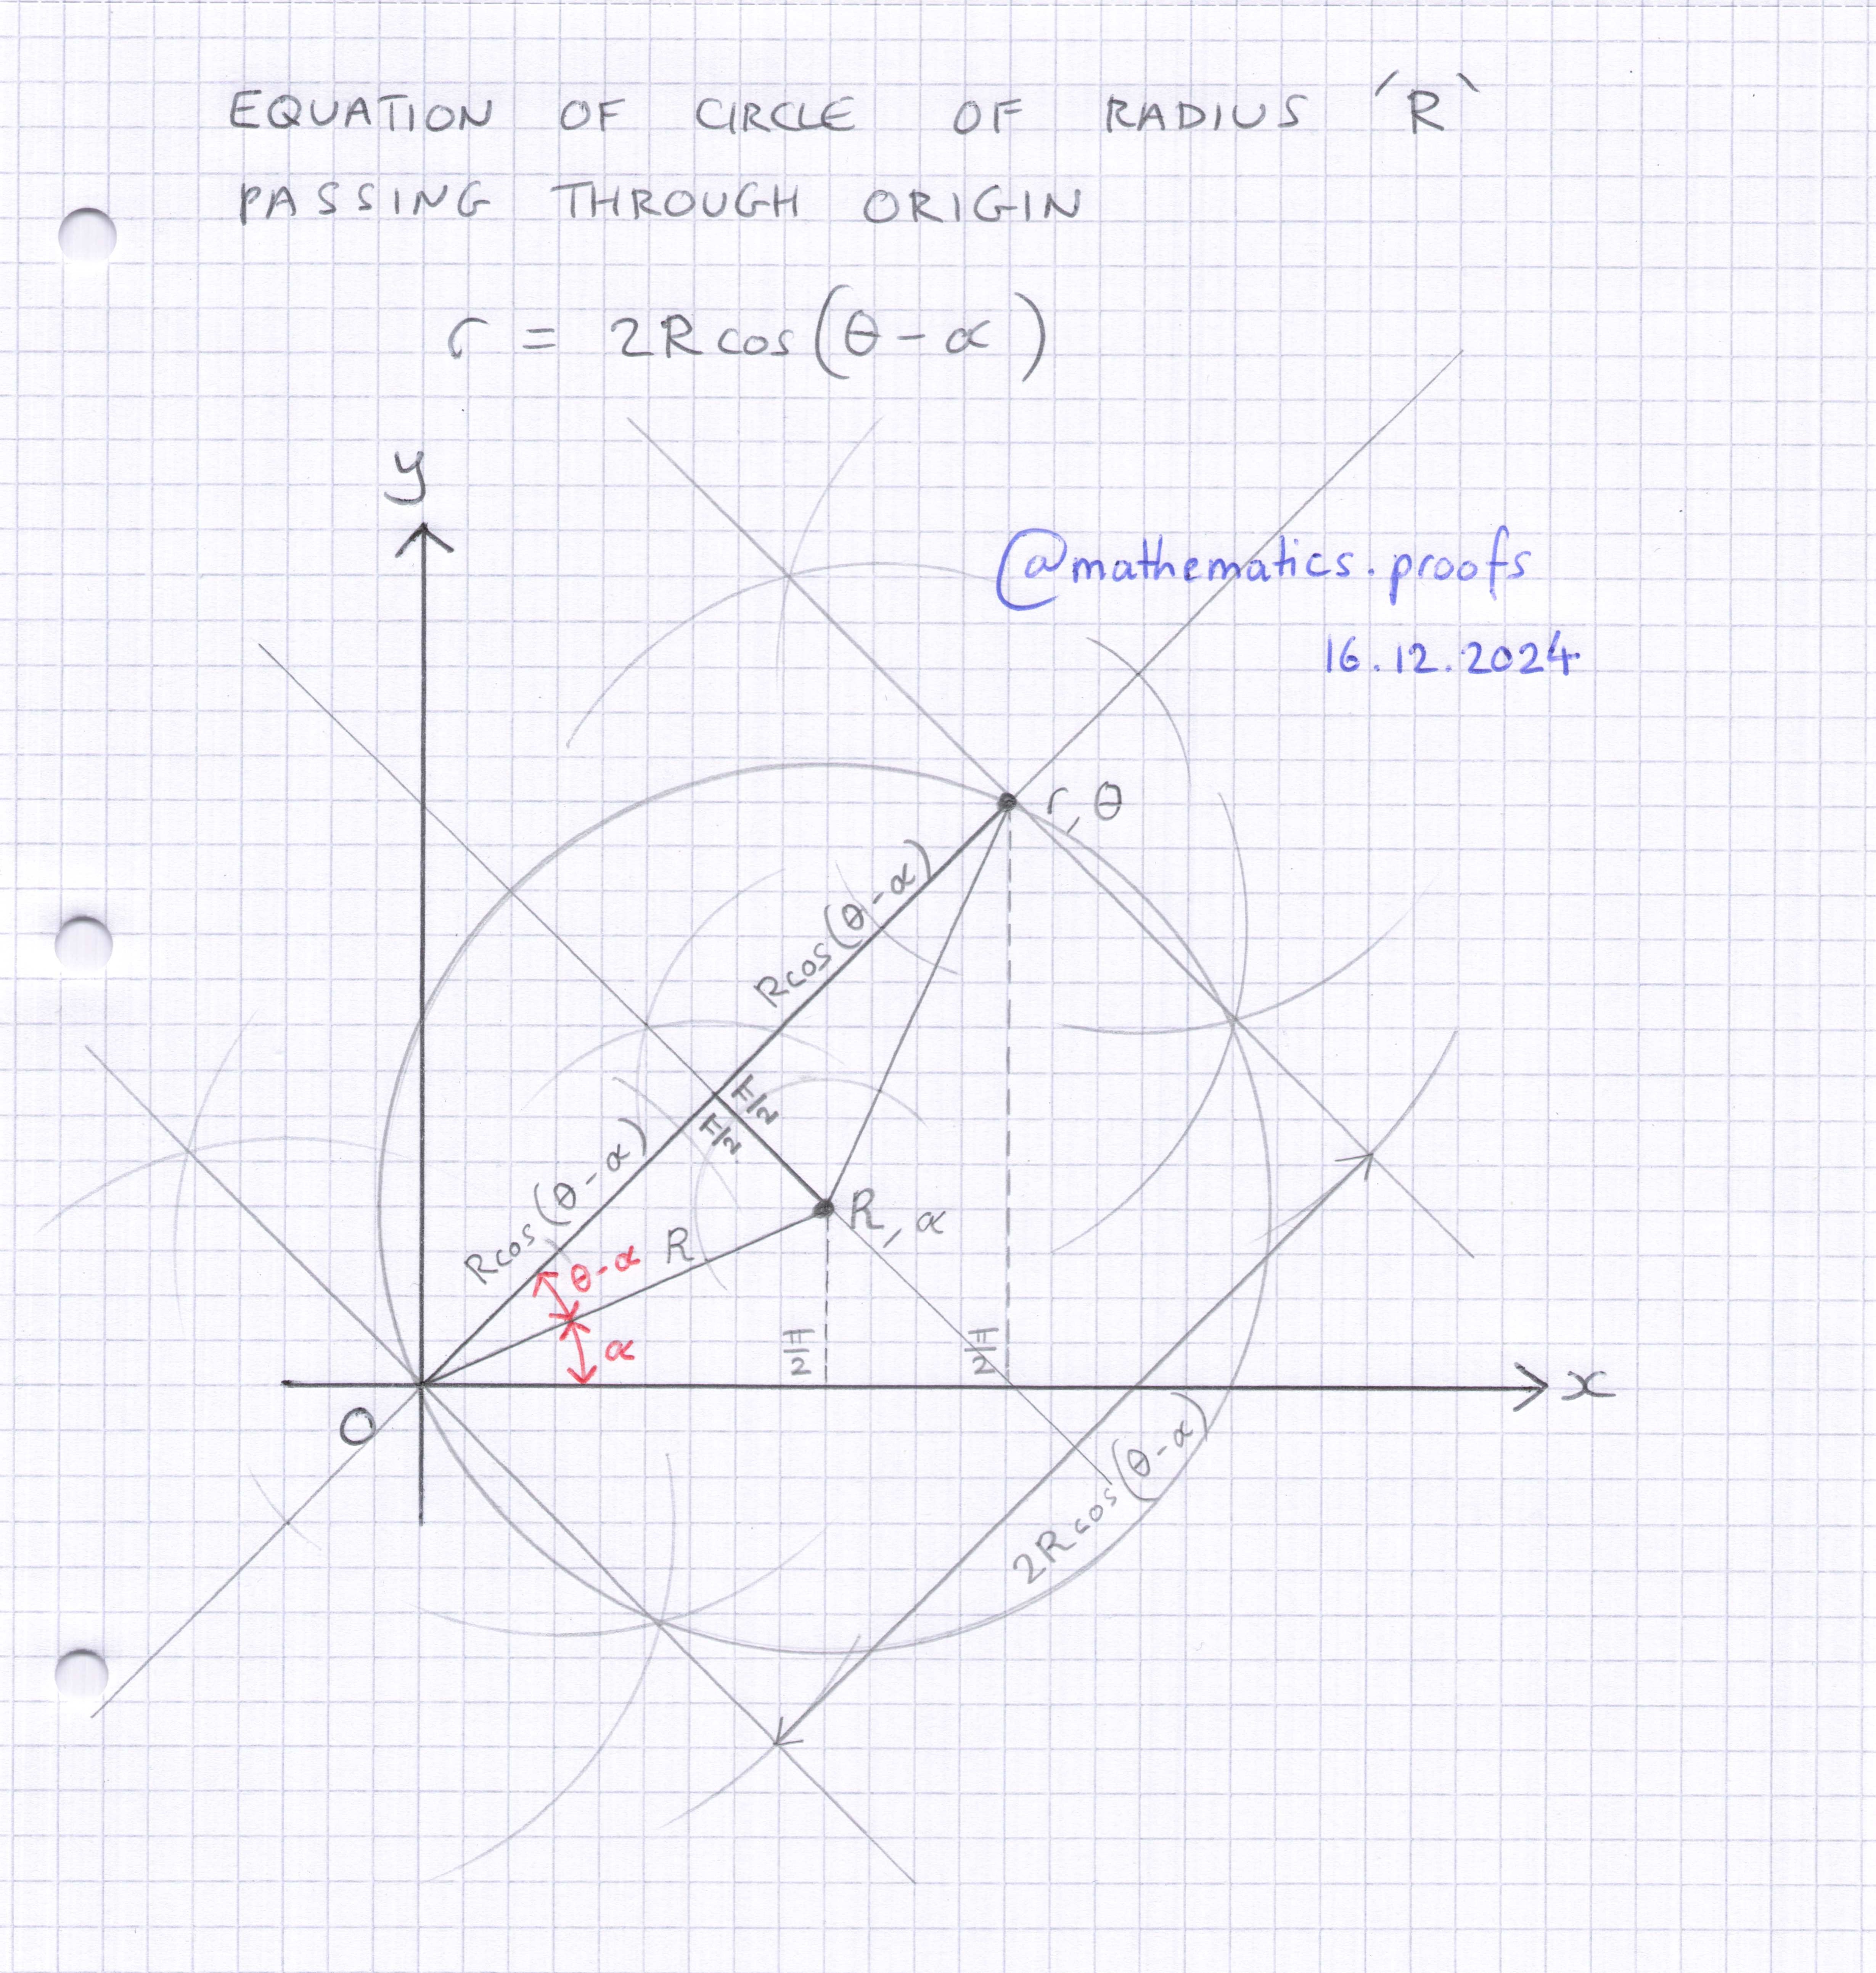 EQUATION OF CIRCLE OF RADIUS ´R`
PASSING THROUGH ORIGIN
r = 2Rcos(θ-α)
y
@mathematics.proofs
16.12.2024
r, θ
Rcos(θ-α)
π/2
π/2
Rcos(θ-α)
R, α
R
θ-α
α
π/2
π/2
x
O
2Rcos(θ-α)